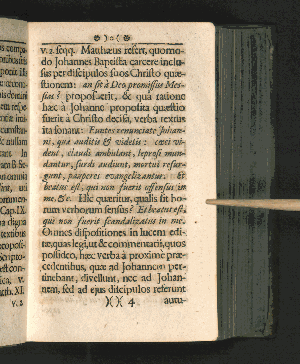 v. 2. seqq. Matthæus refert, quomo-
do Johannes Baptista carcere inclu-
sus per discipulos suos Christo quæ-
stionem: an sit à Deo promissus Mes-
sias? proposuerit, & quâ ratione
hæc à Johanne proposita quæstio
fuerit à Christo decisa, verba textus
ita sonant: Euntes renunciate Johan-
ni, quæ auditis & videtis: cæci vi-
dent, claudi ambulant, leprosi mun-
dantur, surdi audiunt, mortui resur-
gunt, pauperes evangelizantur. Et
beatus est, qui non fuerit offensus in
me, &c. Hîc quæritur, qualis sit ho-
rum verborum sensus? Et beatus est,
qui non fuerit scandalizatus in me.
Omnes dispositiones in lucem edi-
tæ, quas legi, ut & commentarii, quos
possideo, hæc verba à proximè præ-
cedentibus, quæ ad Johannem per-
tinebant, divellunt, nec ad Johan-
nem, sed ad ejus discipulos referunt
)( )( 4 autu-